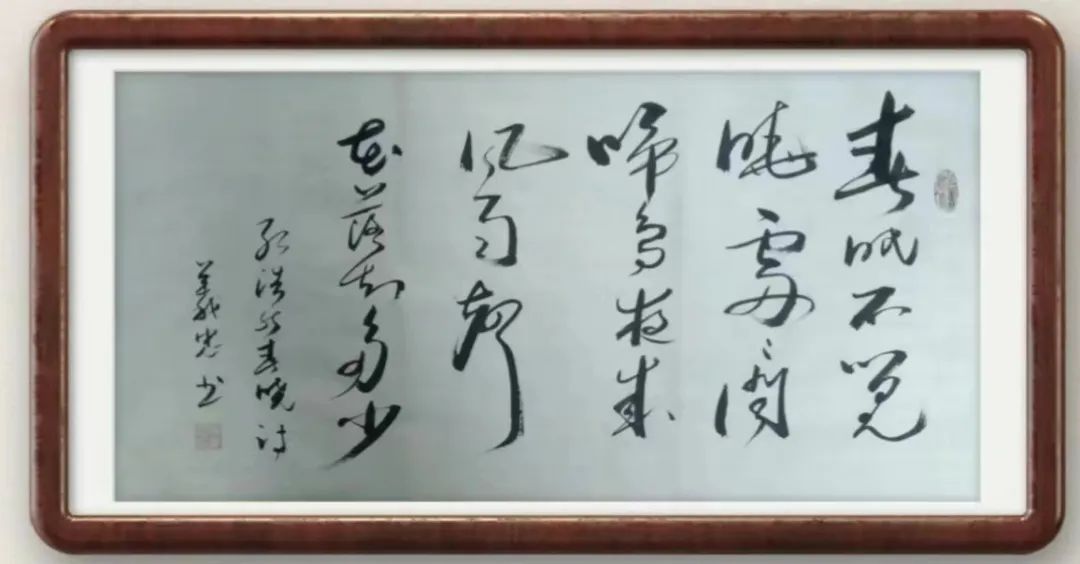 春眠不觉
晓處々闻
啼鸟夜来
风雨聲
花落知多少
孟浩然春晓诗
義忠书